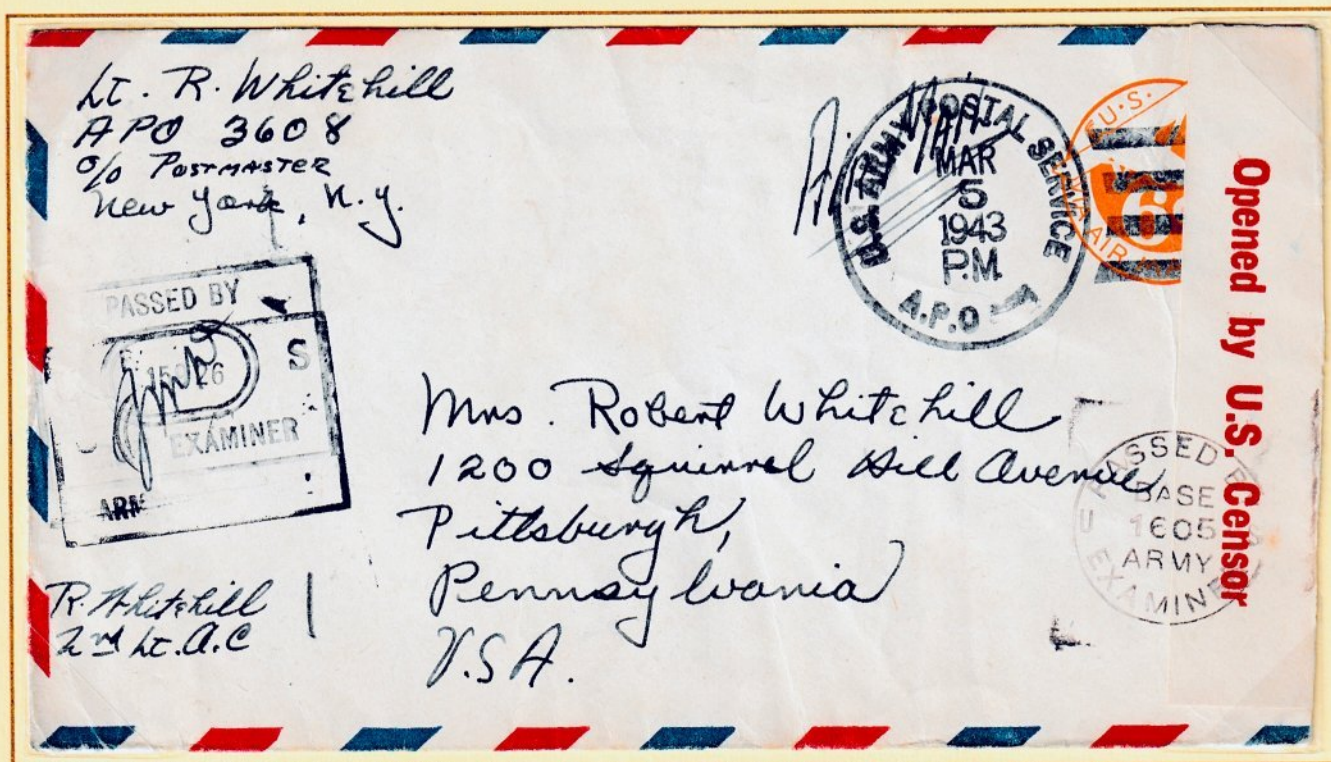 Lt. R. Whitehill
APO 3608
c/o Postmaster
New York, N.Y.
Air Mail
U.S. ARMY POSTAL SERVICE
MAR
5
1943
P.M.
A.P.O
U.S.
AIR
Opened by U.S. Censor
PASSED BY
S
EXAMINER
ARM
Mrs. Robert Whitehill
1200 Squirrel Hill Avenue
Pittsburgh,
Pennsylvania
U.S.A.
BASE
1605
ARMY
EXAMINE
R. Whitehill
2nd Lt. A.C